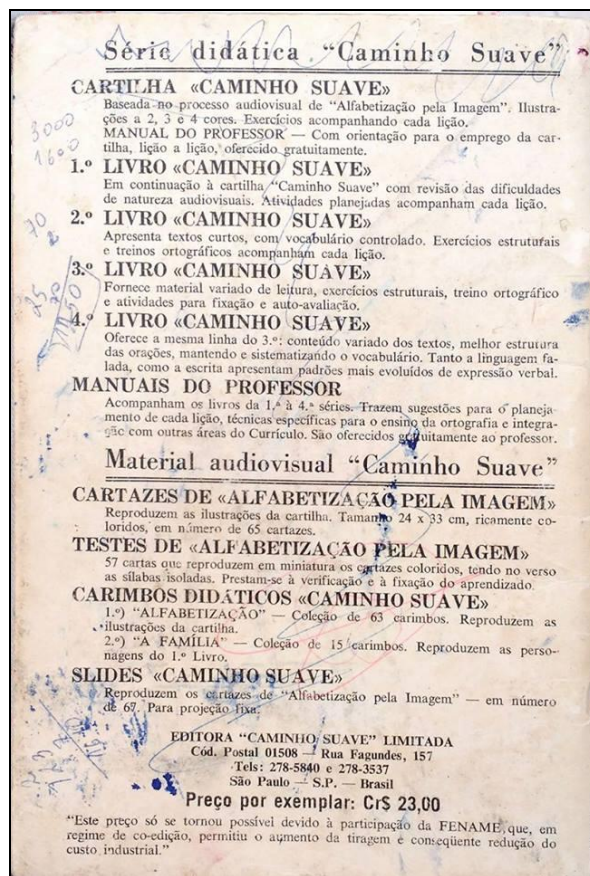 Série didática "Caminho Suave"
CARTILHA «CAMINHO SUAVE»
Baseada no processo audiovisual de "Alfabetização pela Imagem". Ilustra-
ções a 2, 3 e 4 cores. Exercícios acompanhando cada lição.
MANUAL DO PROFESSOR — Com orientação para o emprego da car-
tilha, lição a lição, oferecido gratuitamente.
3000
1600
1.º LIVRO «CAMINHO SUAVE»
Em continuação à cartilha "Caminho Suave" com revisão das dificuldades
de natureza audiovisuais. Atividades planejadas acompanham cada lição.
70
2
2.º LIVRO «CAMINHO SUAVE»
Apresenta textos curtos, com vocabulário controlado. Exercícios estruturais
e treinos ortográficos acompanham cada lição.
3.º LIVRO «CAMINHO SUAVE»
Fornece material variado de leitura, exercícios estruturais, treino ortográfico
e atividades para fixação e auto-avaliação.
4.º LIVRO «CAMINHO SUAVE»
Oferece a mesma linha do 3.º: conteúdo variado dos textos, melhor estrutura
das orações, mantendo e sistematizando o vocabulário. Tanto a linguagem fa-
lada, como a escrita apresentam padrões mais evoluídos de expressão verbal.
MANUAIS DO PROFESSOR
Acompanham os livros da 1.ª à 4.ª séries. Trazem sugestões para o planeja-
mento de cada lição, técnicas específicas para o ensino da ortografia e integra-
ção com outras áreas do Currículo. São oferecidos gratuitamente ao professor.
Material audiovisual "Caminho Suave"
CARTAZES DE «ALFABETIZAÇÃO PELA IMAGEM»
Reproduzem as ilustrações da cartilha. Tamanho 24 x 33 cm, ricamente co-
loridos, em número de 65 cartazes.
TESTES DE «ALFABETIZAÇÃO PELA IMAGEM»
57 cartas que reproduzem em miniatura os cartazes coloridos, tendo no verso
as sílabas isoladas. Prestam-se à verificação e à fixação do aprendizado.
CARIMBOS DIDÁTICOS «CAMINHO SUAVE»
1.º) "ALFABETIZAÇÃO" — Coleção de 63 carimbos. Reproduzem as
ilustrações da cartilha.
2.º) "A FAMÍLIA" — Coleção de 15 carimbos. Reproduzem as perso-
nagens do 1.º Livro.
SLIDES «CAMINHO SUAVE»
Reproduzem os cartazes de "Alfabetização pela Imagem" — em número
de 67. Para projeção fixa.
EDITORA "CAMINHO SUAVE" LIMITADA
Cód. Postal 01508 — Rua Fagundes, 157
Tels: 278-5840 e 278-3537
São Paulo — S.P. — Brasil
Preço por exemplar: Cr$ 23,00
"Este preço só se tornou possível devido à participação da FENAME que, em
regime de co-edição, permitiu o aumento da tiragem e conseqüente redução do
custo industrial."